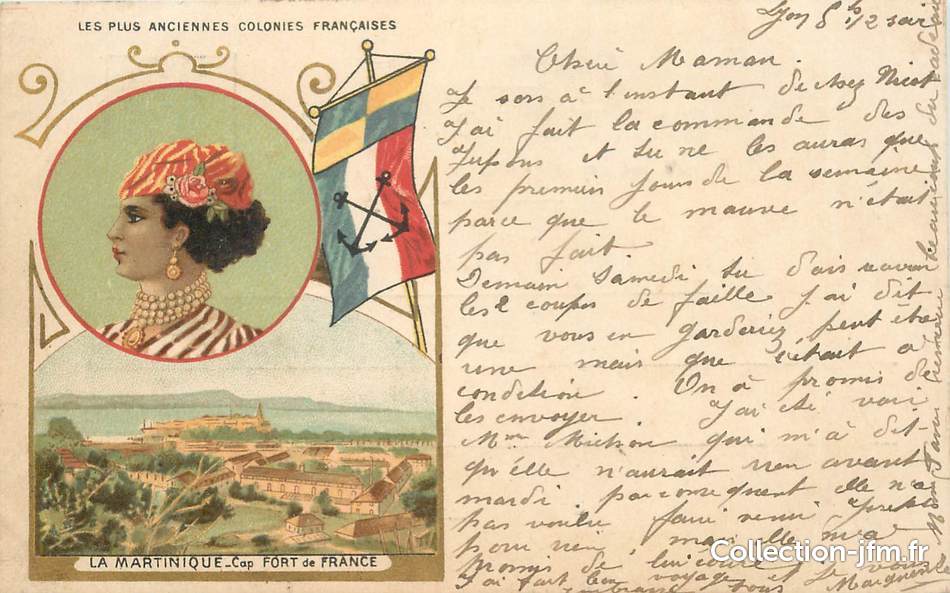 LES PLUS ANCIENNES COLONIES FRANÇAISES
LA MARTINIQUE_Cap FORT de FRANCE
Lyon 5h 1/2 soir
Chère Maman.
Je sors à l'instant de chez
J'ai fait la commande des
Jupons et tu ne les auras que
les premiers jours de la semaine
parce que le mauve n'était
pas fait.
Demain Samedi tu dois recevoir
les 2 coupes de faille j'ai dit
que vous en garderiez peut être
une mais que c'était à
condition. On a promis de
les envoyer. J'ai été voir
Mme qui m'a dit
qu'elle n'aurait rien avant
mardi par consequent elle n'a
pas voulu faire venir
pour rien, mais elle m'a
promis de
J'ai fait bon voyage et je vous
embrasse tous
Collection-jfm.fr